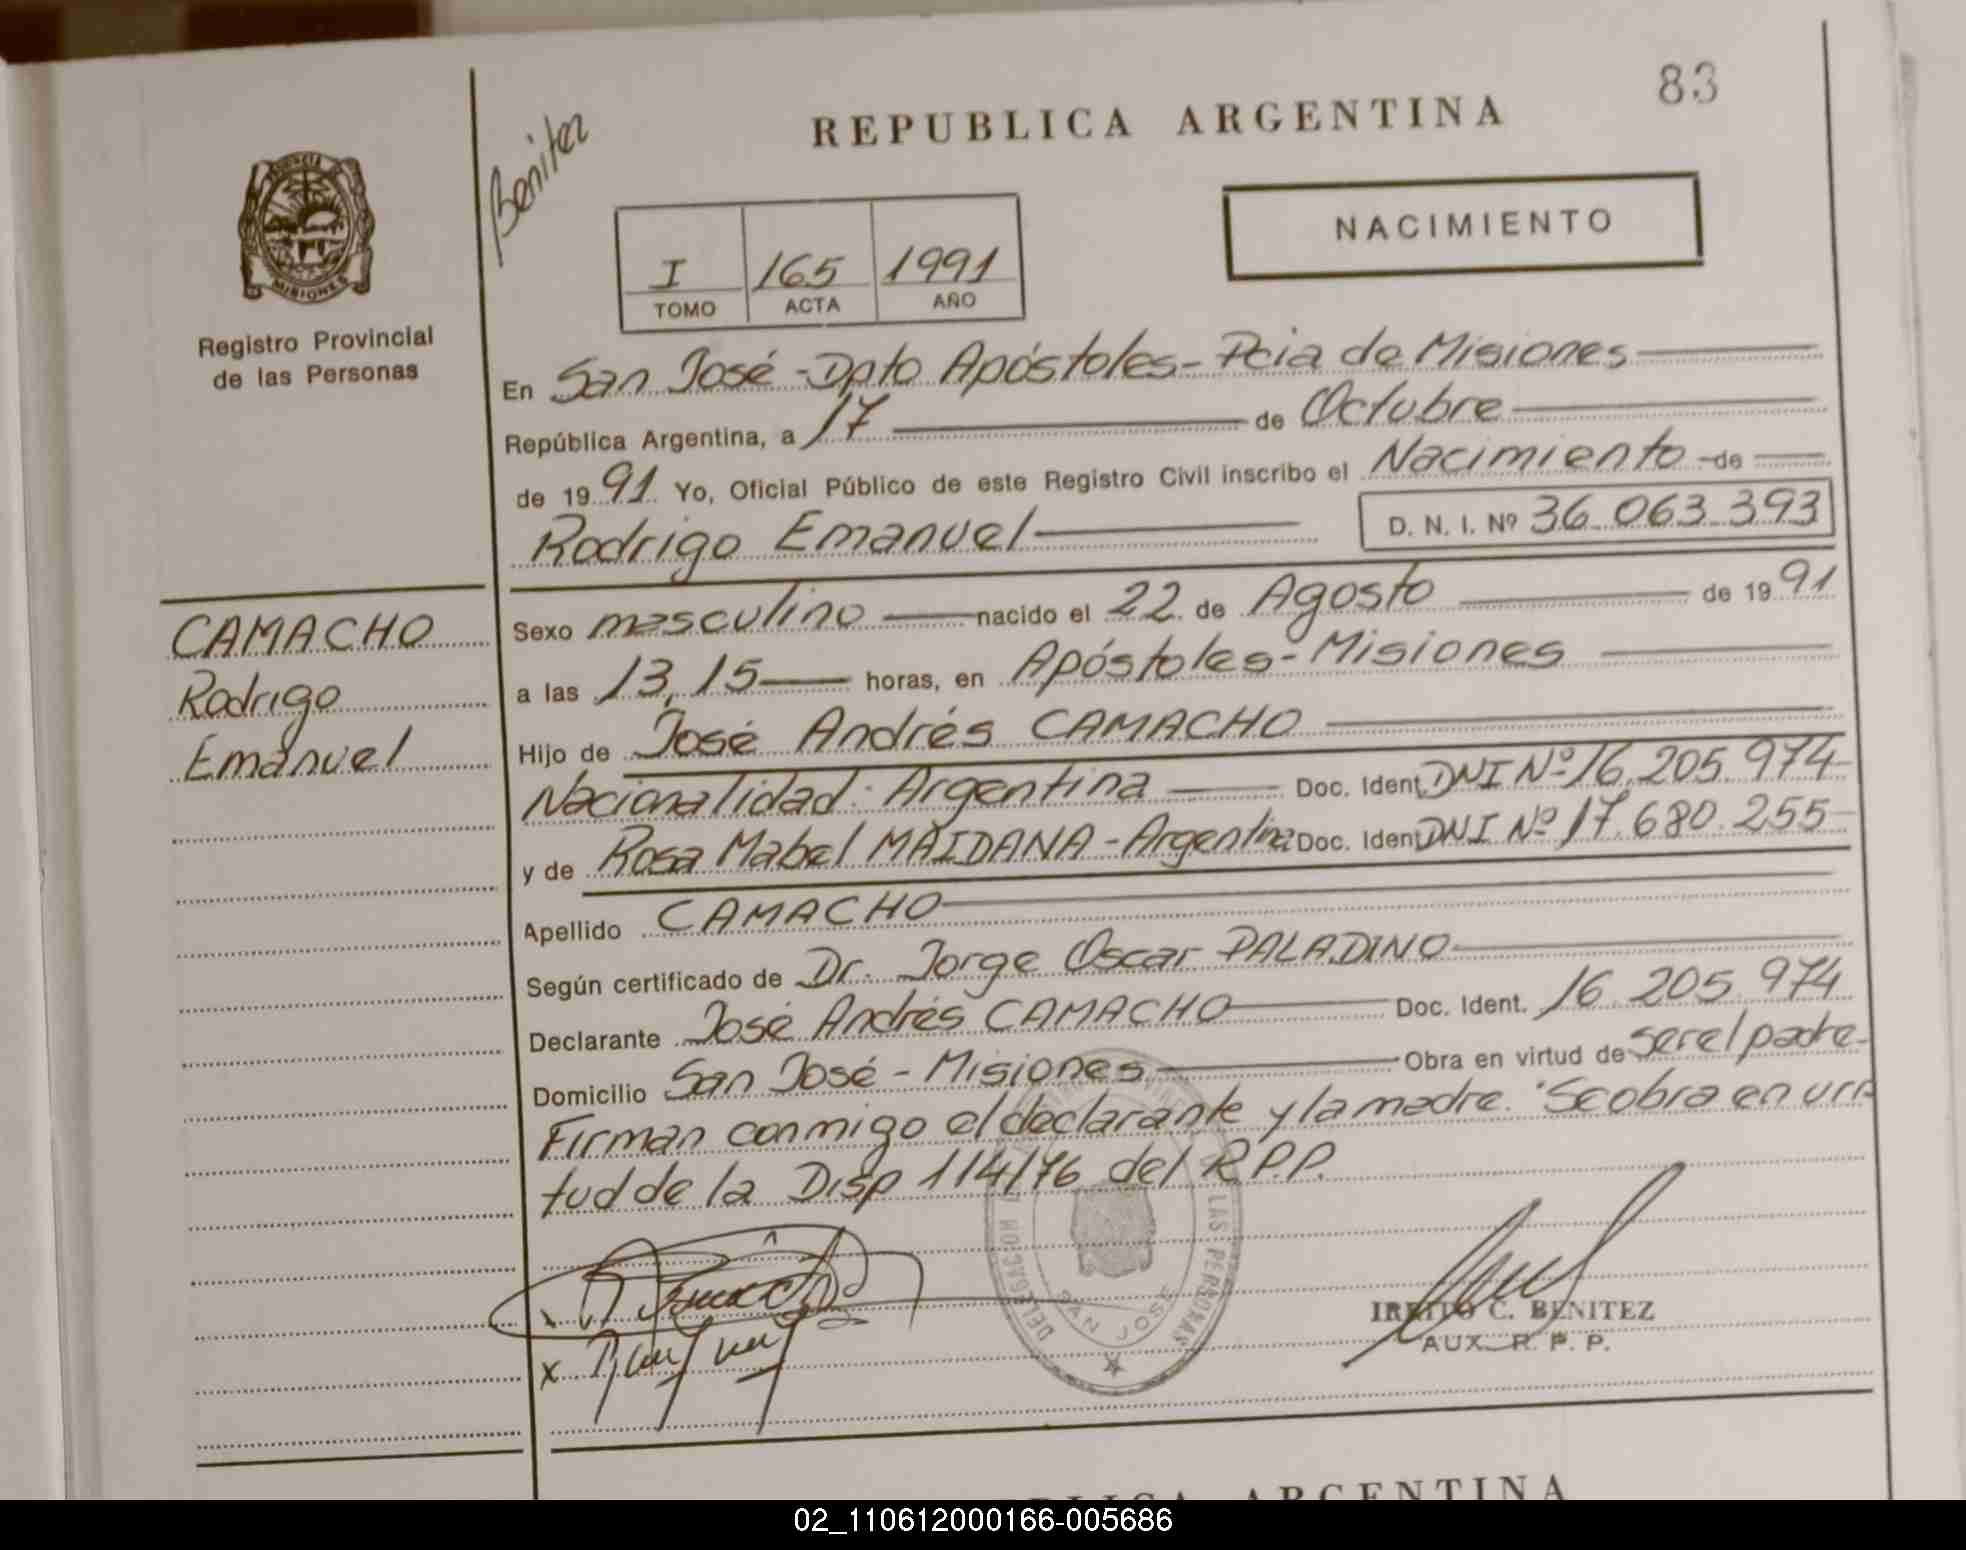 83
REPUBLICA ARGENTINA
Benitez
NACIMIENTO
I 165 1991
TOMO ACTA AÑO
MISIONES
Registro Provincial
de las Personas
En San José - Dpto Apóstoles - Pcia de Misiones
República Argentina, a 17 de Octubre
de 1991 Yo, Oficial Público de este Registro Civil inscribo el Nacimiento de
Rodrigo Emanuel D. N. I. Nº 36.063.393
CAMACHO
Rodrigo
Emanuel
Sexo masculino nacido el 22 de Agosto de 1991
a las 13,15 horas, en Apóstoles - Misiones
Hijo de José Andrés CAMACHO
Nacionalidad: Argentina Doc. Ident. DNI Nº 16.205.974
y de Rosa Mabel MAIDANA - Argentina Doc. Ident. DNI Nº 17.680.255
Apellido CAMACHO
Según certificado de Dr. Jorge Oscar PALADINO
Declarante José Andrés CAMACHO Doc. Ident. 16.205.974
Domicilio San José - Misiones Obra en virtud de ser el padre -
Firman conmigo el declarante y la madre. Se obra en vir
tud de la Disp 114/76 del R.P.P.
DELEGACION LAS PERSONAS
SAN JOSE
C. BENITEZ
AUX. R. P. P.
ARGENTINA
02_110612000166-005686